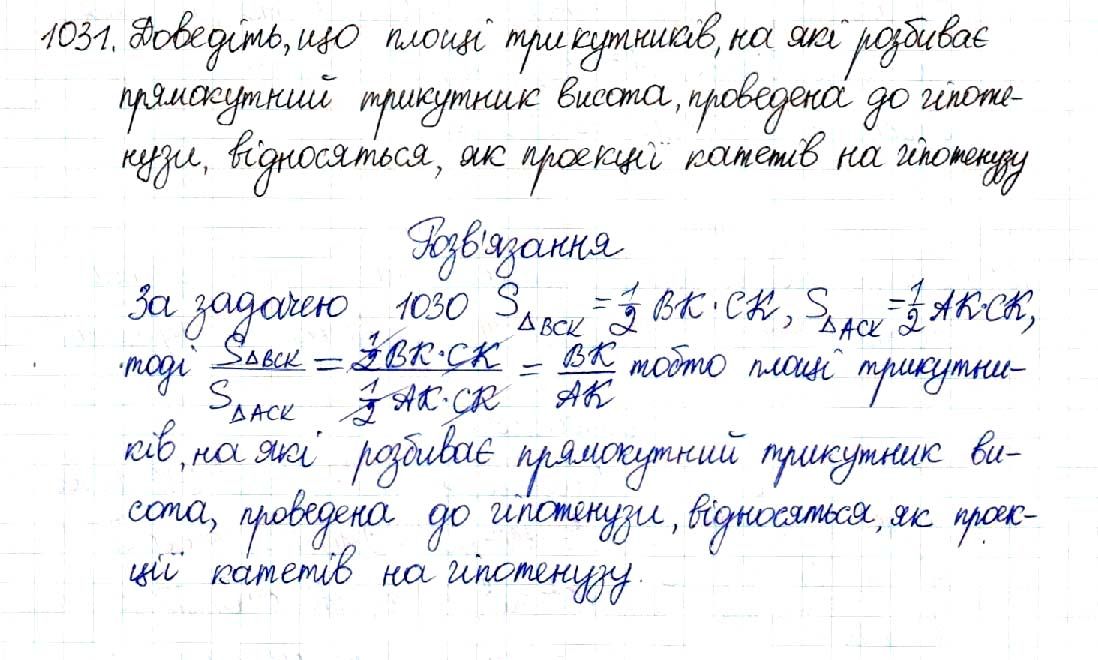 1031. Доведіть, що площі трикутників, на які розбиває
прямокутний трикутник висота, проведена до гіпоте-
нузи, відносяться, як проекції катетів на гіпотенузу
Розв'язання
За задачею 1030 S△BCK = 1/2 BK · CK, S△ACK = 1/2 AK·CK,
тоді S△BCK / S△ACK = 1/2 BK · CK / 1/2 AK · CK = BK / AK тобто площі трикутни-
ків, на які розбиває прямокутний трикутник ви-
сота, проведена до гіпотенузи, відносяться, як проек-
ції катетів на гіпотенузу.